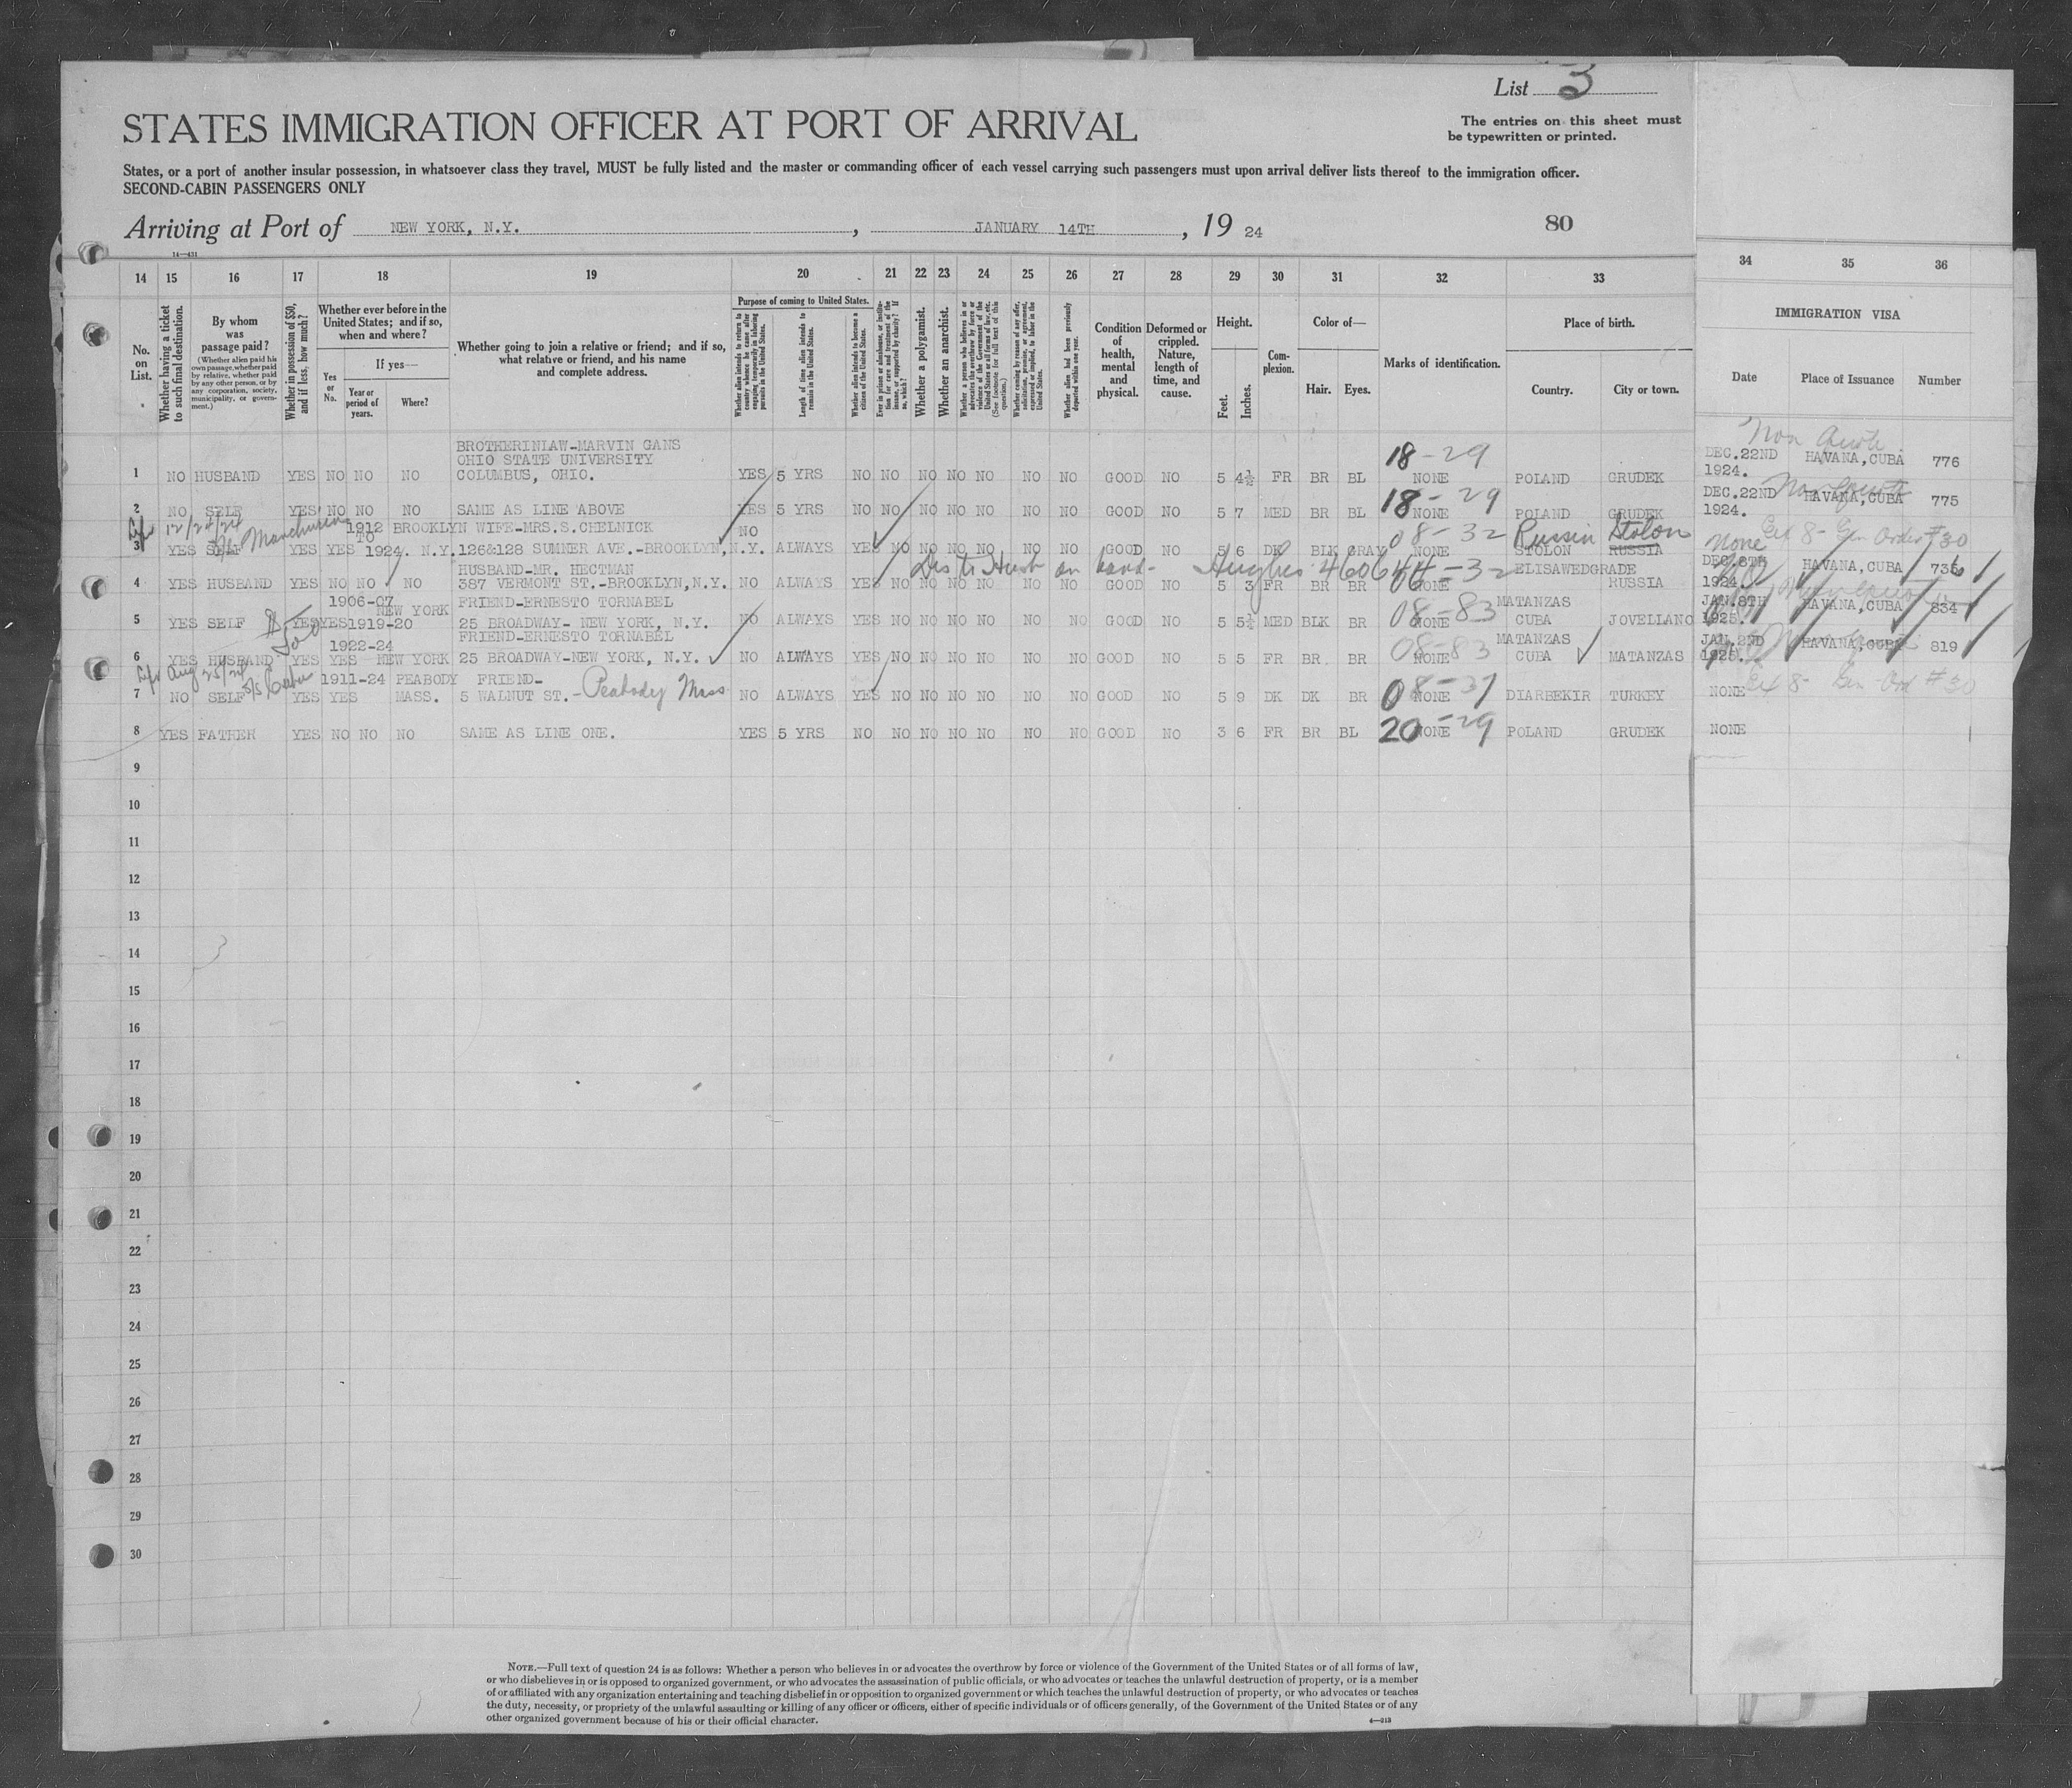 List 3
STATES IMMIGRATION OFFICER AT PORT OF ARRIVAL
The entries on this sheet must
be typewritten or printed.
States, or a port of another insular possession, in whatsoever class they travel, MUST be fully listed and the master or commanding officer of each vessel carrying such passengers must upon arrival deliver lists thereof to the immigration officer.
SECOND-CABIN PASSENGERS ONLY
Arriving at Port of NEW YORK, N.Y. , JANUARY 14TH , 19 24 80
14—431
14 15 16 17 18 19 20 21 22 23 24 25 26 27 28 29 30 31 32 33 34 35 36
No. on List.
Whether having a ticket to such final destination.
By whom was passage paid?
(Whether alien paid his own passage, whether paid by relative, whether paid by any other person, or by any corporation, society, municipality, or government.)
Whether in possession of $50, and if less, how much?
Whether ever before in the United States; and if so, when and where?
Yes or No.
If yes—
Year or period of years.
Where?
Whether going to join a relative or friend; and if so, what relative or friend, and his name and complete address.
Purpose of coming to United States.
Whether alien intends to return to country whence he came after engaging temporarily in laboring pursuits in the United States.
Length of time alien intends to remain in the United States.
Whether alien intends to become a citizen of the United States.
Ever in prison or almshouse, or institution for care and treatment of the insane, or supported by charity? If so, which?
Whether a polygamist.
Whether an anarchist.
Whether a person who believes in or advocates the overthrow by force or violence of the Government of the United States or all forms of law, etc. (See footnote for full text of this question.)
Whether coming by reason of any offer, solicitation, promise, or agreement, expressed or implied, to labor in the United States.
Whether alien had been previously deported within one year.
Condition of health, mental and physical.
Deformed or crippled. Nature, length of time, and cause.
Height.
Feet. Inches.
Complexion.
Color of—
Hair. Eyes.
Marks of identification.
Place of birth.
Country. City or town.
IMMIGRATION VISA
Date Place of Issuance Number
BROTHERINLAW-MARVIN GANS
OHIO STATE UNIVERSITY 18-29 DEC.22ND Non Quota
1 NO HUSBAND YES NO NO NO COLUMBUS, OHIO. YES 5 YRS NO NO NO NO NO NO NO GOOD NO 5 4½ FR BR BL NONE POLAND GRUDEK 1924. HAVANA,CUBA 776
18-29 DEC.22ND Non Quota
2 NO SELF YES NO NO NO SAME AS LINE ABOVE YES 5 YRS NO NO NO NO NO NO NO GOOD NO 5 7 MED BR BL NONE POLAND GRUDEK 1924. HAVANA,CUBA 775
12/24/24 Manchuria 1912 BROOKLYN WIFE-MRS.S.CHELNICK NO 08-32 Russia Stolon Ex 8- Gen Order #30
3 YES SELF YES YES TO 1924. N.Y. 126&128 SUMMER AVE.-BROOKLYN,N.Y. ALWAYS YES NO NO NO NO NO NO GOOD NO 5 6 DK BLK GRAY NONE STOLON RUSSIA None
HUSBAND-MR. HECTMAN Hughes 46064 ELISAWEDGRADE DEC.8TH
4 YES HUSBAND YES NO NO NO 387 VERMONT ST.-BROOKLYN,N.Y. NO ALWAYS YES NO NO NO GOOD NO 5 3 FR BR BR NONE RUSSIA 1924. HAVANA,CUBA 736
1906-07 NEW YORK FRIEND-ERNESTO TORNABEL 08-83 MATANZAS JAN.8TH
5 YES SELF $500 YES YES 1919-20 25 BROADWAY- NEW YORK, N.Y. NO ALWAYS YES NO NO NO NO NO NO GOOD NO 5 5½ MED BLK BR NONE CUBA JOVELLANO 1925. HAVANA,CUBA 834
1922-24 FRIEND-ERNESTO TORNABEL 08-83 MATANZAS JAN.2ND
6 YES HUSBAND YES YES NEW YORK 25 BROADWAY-NEW YORK, N.Y. NO ALWAYS YES NO NO NO NO NO NO GOOD NO 5 5 FR BR BR NONE CUBA MATANZAS 1925. HAVANA,CUBA 819
Aug 25/24 S/S Cuba 1911-24 PEABODY FRIEND- 08-37 Ex 8- Gen Ord #30
7 NO SELF YES YES MASS. 5 WALNUT ST.- Peabody Mass NO ALWAYS YES NO NO NO NO NO NO GOOD NO 5 9 DK DK BR NONE DIARBEKIR TURKEY NONE
20-29
8 YES FATHER YES NO NO NO SAME AS LINE ONE. YES 5 YRS NO NO NO NO NO NO NO GOOD NO 3 6 FR BR BL NONE POLAND GRUDEK NONE
9
10
11
12
13
14
15
16
17
18
19
20
21
22
23
24
25
26
27
28
29
30
NOTE.—Full text of question 24 is as follows: Whether a person who believes in or advocates the overthrow by force or violence of the Government of the United States or of all forms of law,
or who disbelieves in or is opposed to organized government, or who advocates the assassination of public officials, or who advocates or teaches the unlawful destruction of property, or is a member
of or affiliated with any organization entertaining and teaching disbelief in or opposition to organized government or which teaches the unlawful destruction of property, or who advocates or teaches
the duty, necessity, or propriety of the unlawful assaulting or killing of any officer or officers, either of specific individuals or of officers generally, of the Government of the United States or of any
other organized government because of his or their official character.
4—313